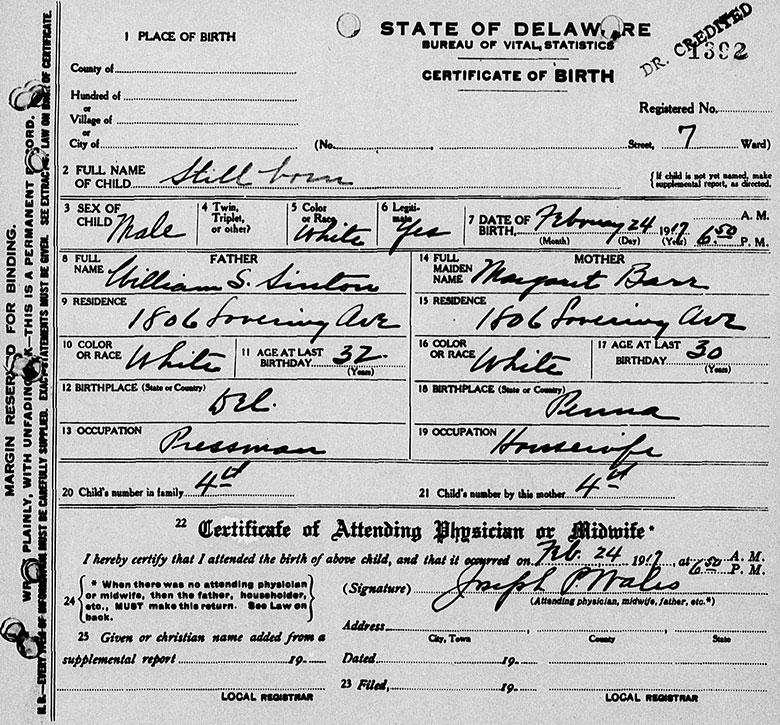 STATE OF DELAWARE
BUREAU OF VITAL STATISTICS
CERTIFICATE OF BIRTH
DR. CREDITED
1392
1 PLACE OF BIRTH
County of
Hundred of
or
Village of
or
City of
(No. Street, 7 Ward)
Registered No.
2 FULL NAME OF CHILD Still born
{If child is not yet named, make supplemental report, as directed.
3 SEX OF CHILD Male
4 Twin, Triplet, or other?
5 Color or Race White
6 Legitimate Yes
7 DATE OF BIRTH, February 24 1917 6.50 A. M. P. M.
(Month) (Day) (Year)
FATHER
8 FULL NAME William S. Sinton
9 RESIDENCE
1806 Lovering Ave
10 COLOR OR RACE White
11 AGE AT LAST BIRTHDAY 32
(Years)
12 BIRTHPLACE (State or Country)
Del.
13 OCCUPATION
Pressman
MOTHER
14 FULL MAIDEN NAME Margaret Barr
15 RESIDENCE
1806 Lovering Ave
16 COLOR OR RACE White
17 AGE AT LAST BIRTHDAY 30
(Years)
18 BIRTHPLACE (State or Country)
Penna
19 OCCUPATION
Housewife
20 Child's number in family 4th
21 Child's number by this mother 4th
22 Certificate of Attending Physician or Midwife*
I hereby certify that I attended the birth of above child, and that it occurred on Feb. 24 1917, at 6.50 A. M. P. M.
24 {* When there was no attending physician or midwife, then the father, householder, etc., MUST make this return. See Law on back.}
(Signature) Joseph P Wales
(Attending physician, midwife, father, etc.*)
Address
City, Town County State
25 Given or christian name added from a supplemental report 19
Dated 19
23 Filed, 19
LOCAL REGISTRAR
LOCAL REGISTRAR
MARGIN RESERVED FOR BINDING.
WRITE PLAINLY, WITH UNFADING INK—THIS IS A PERMANENT RECORD.
N. B.—EVERY ITEM OF INFORMATION MUST BE CAREFULLY SUPPLIED. EXACT STATEMENTS MUST BE GIVEN. SEE EXTRACTS, LAW ON BACK OF CERTIFICATE.